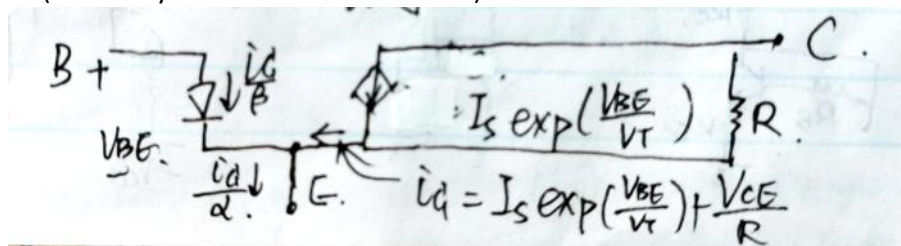 C.
B + ↓ ic/β
= Is exp(VBE/VT) R.
VBE.
id/α. ↓ E. id = Is exp(VBE/VT) + VCE/R